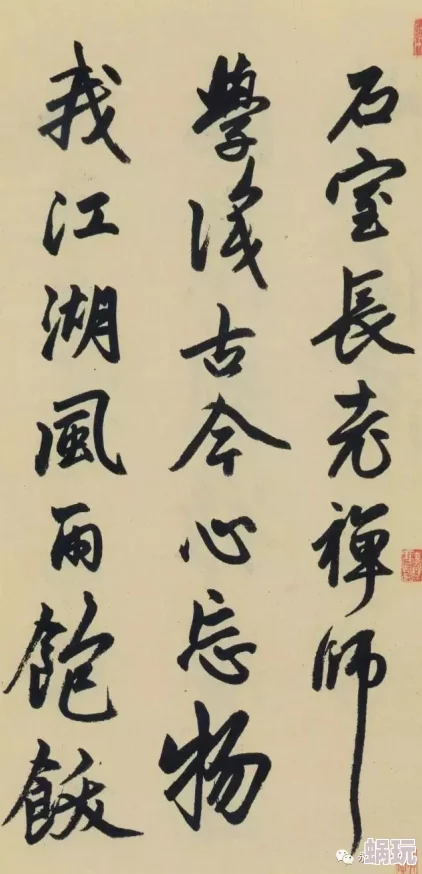 石室長老禪師
學識古今心忘物
我江湖風雨飽飫
蜗玩